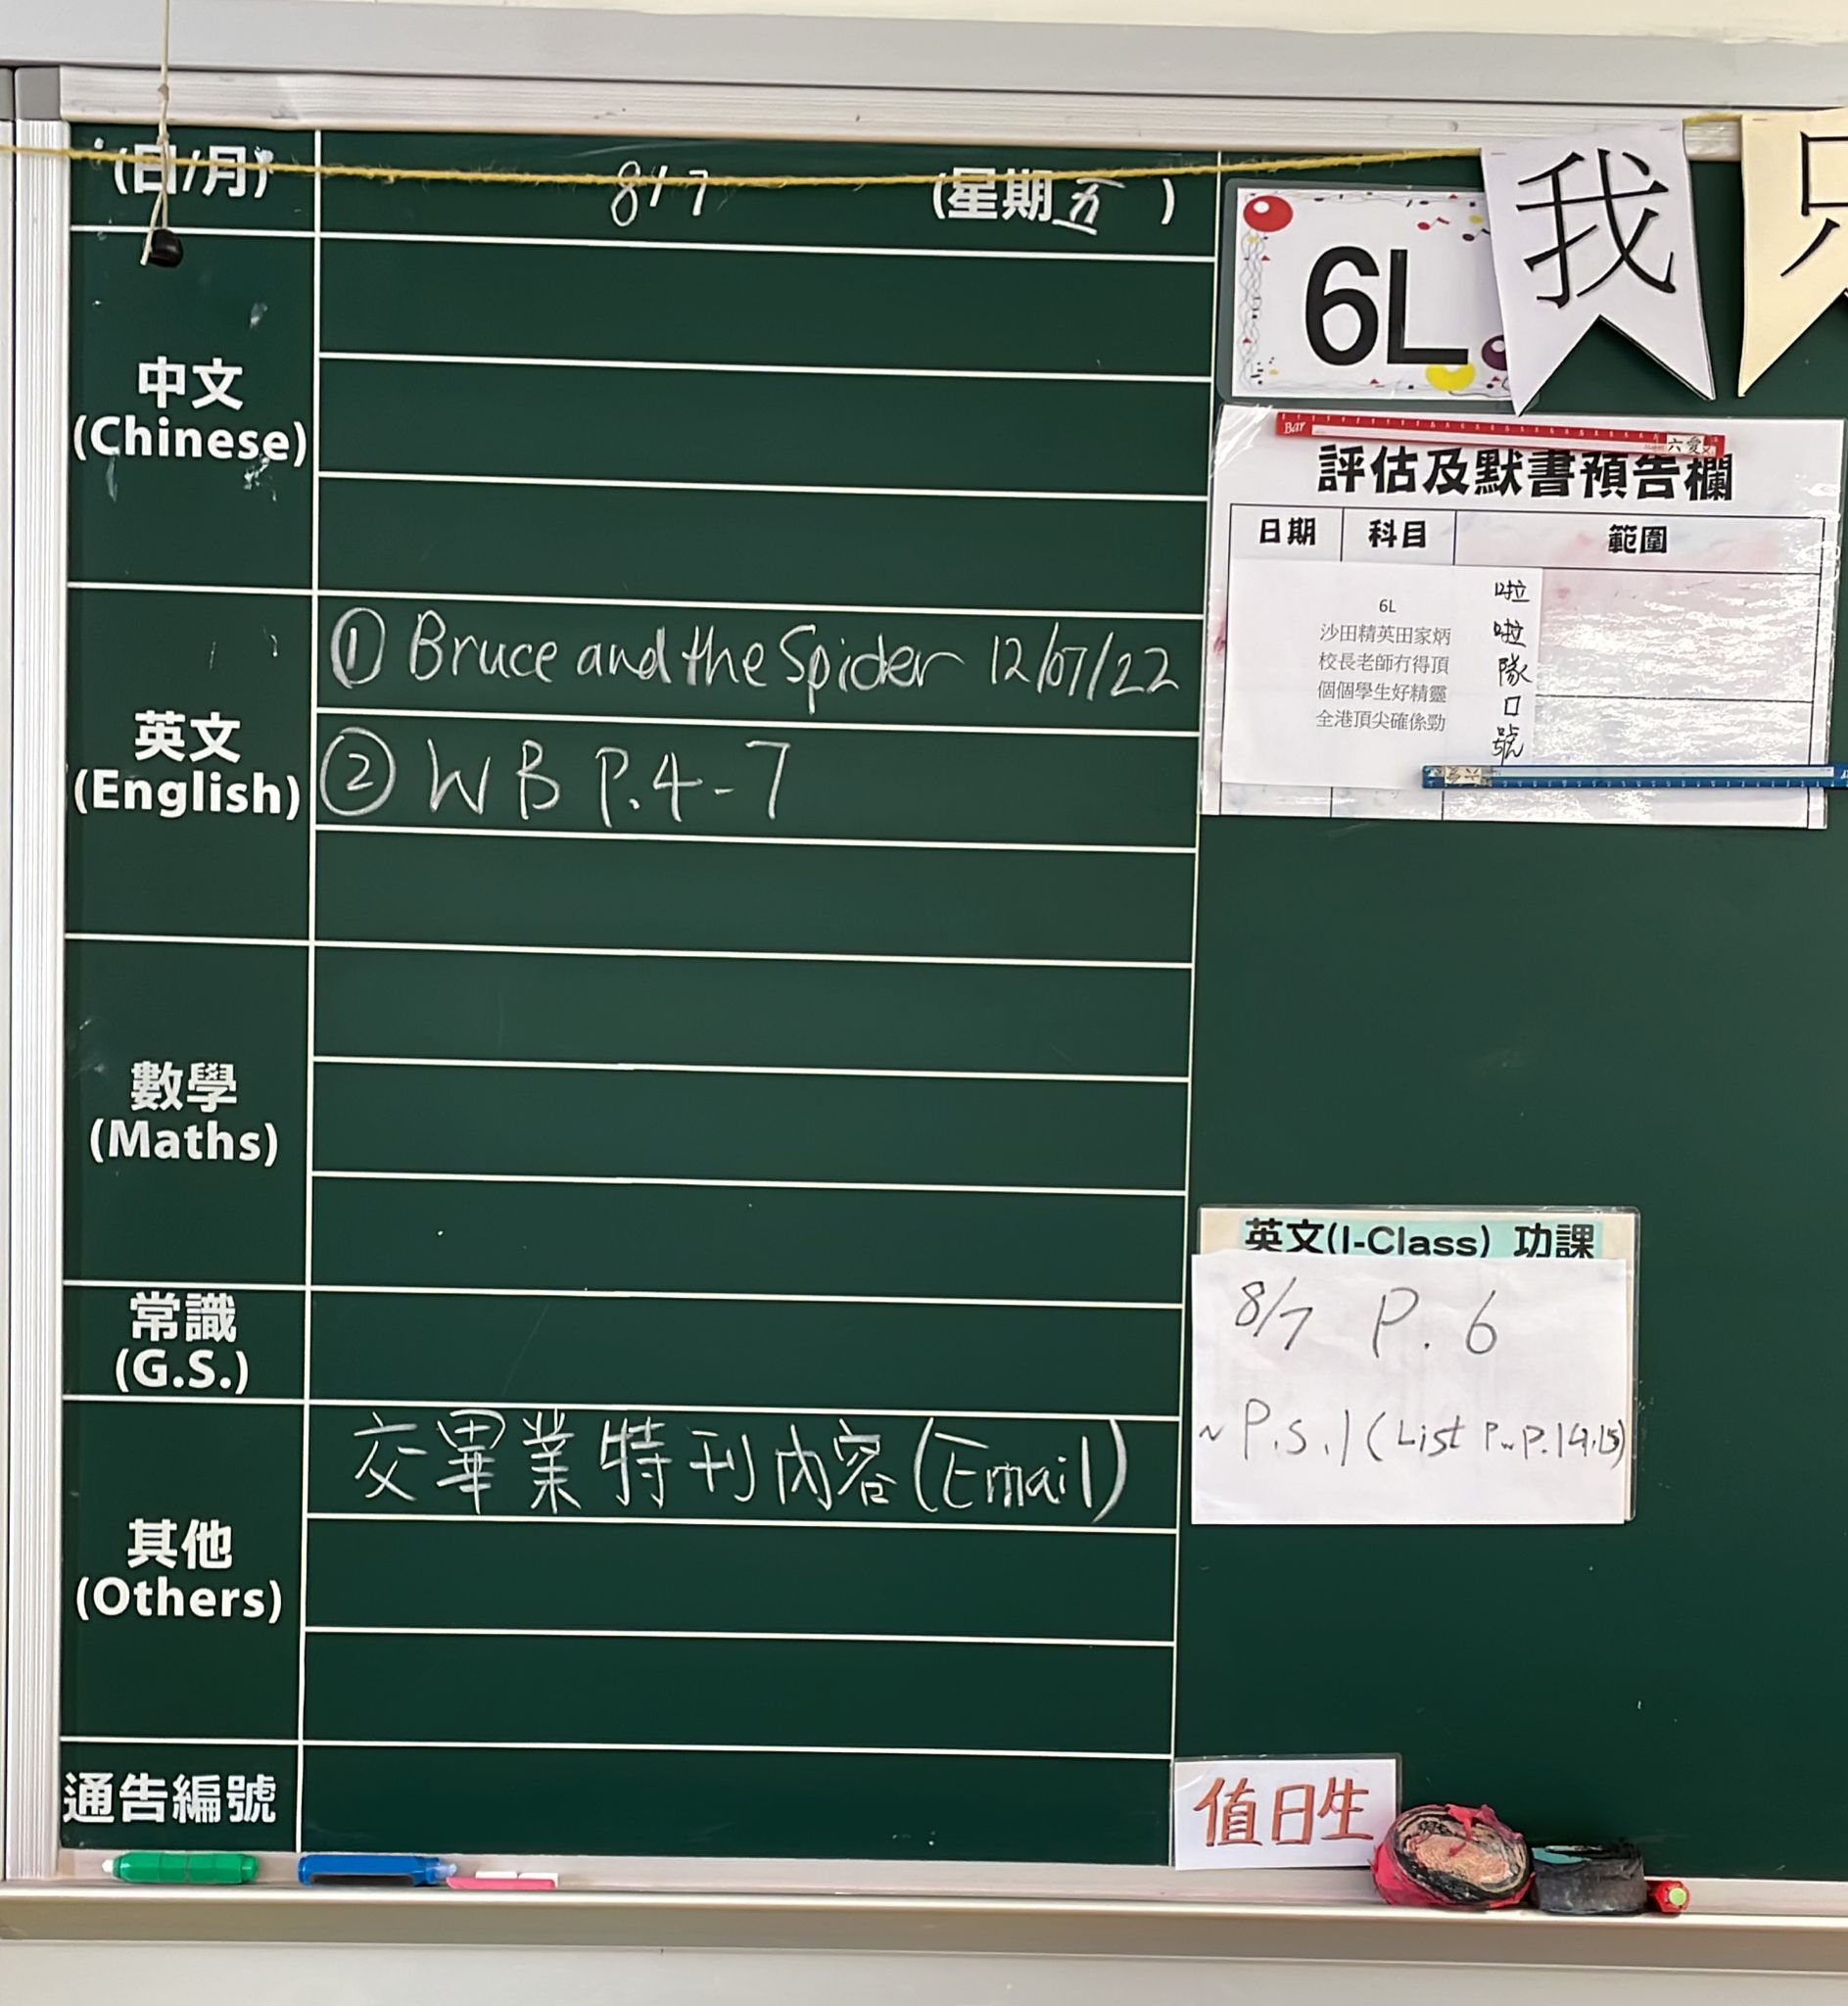 (日/月)
8/7 (星期五)
中文
(Chinese)
英文
(English)
① Bruce and the Spider 12/07/22
② WB P.4-7
數學
(Maths)
常識
(G.S.)
其他
(Others)
交畢業特刊內容(Email)
通告編號
6L
我
只
Bar
六愛
評估及默書預告欄
日期 科目 範圍
6L
沙田精英田家炳
校長老師冇得頂
個個學生好精靈
全港頂尖確係勁
啦啦隊口號
英文(I-Class) 功課
8/7 P. 6
~ P.S.1 (List P.14,15)
值日生